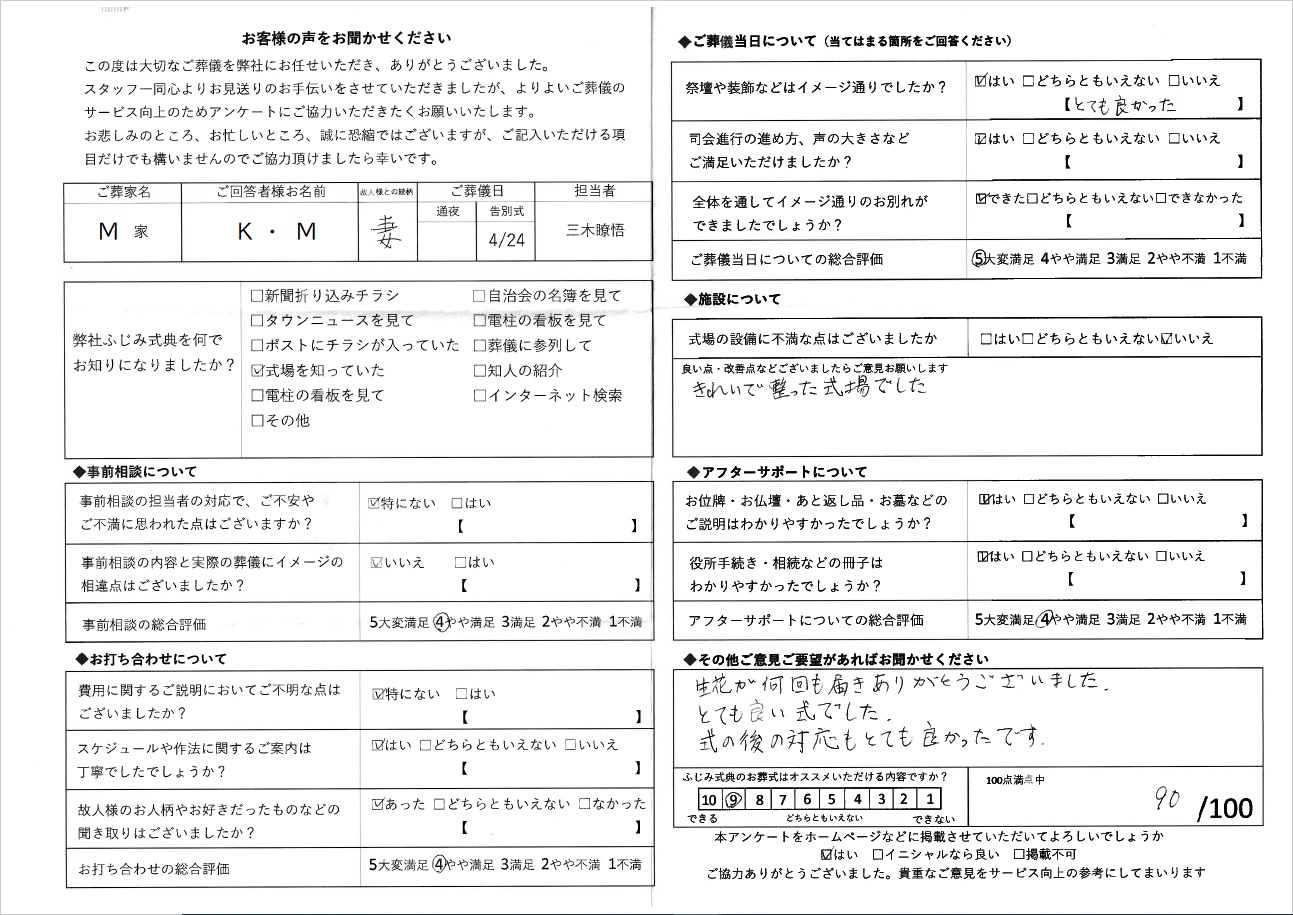 お客様の声をお聞かせください
この度は大切なご葬儀を弊社にお任せいただき、ありがとうございました。
スタッフ一同心よりお見送りのお手伝いをさせていただきましたが、よりよいご葬儀の
サービス向上のためアンケートにご協力いただきたくお願いいたします。
お悲しみのところ、お忙しいところ、誠に恐縮ではございますが、ご記入いただける項
目だけでも構いませんのでご協力頂けましたら幸いです。
ご葬家名 ご回答者様お名前 故人様との続柄 ご葬儀日 担当者
通夜 告別式
M 家 K・M 妻 4/24 三木瞭悟
弊社ふじみ式典を何で
お知りになりましたか？
☐新聞折り込みチラシ ☐自治会の名簿を見て
☐タウンニュースを見て ☐電柱の看板を見て
☐ポストにチラシが入っていた ☐葬儀に参列して
☑式場を知っていた ☐知人の紹介
☐電柱の看板を見て ☐インターネット検索
☐その他
◆事前相談について
事前相談の担当者の対応で、ご不安や
ご不満に思われた点はございますか？
☑特にない ☐はい
【 】
事前相談の内容と実際の葬儀にイメージの
相違点はございましたか？
☑いいえ ☐はい
【 】
事前相談の総合評価 5大変満足 ④やや満足 3満足 2やや不満 1不満
◆お打ち合わせについて
費用に関するご説明においてご不明な点は
ございましたか？
☑特にない ☐はい
【 】
スケジュールや作法に関するご案内は
丁寧でしたでしょうか？
☑はい ☐どちらともいえない ☐いいえ
【 】
故人様のお人柄やお好きだったものなどの
聞き取りはございましたか？
☑あった ☐どちらともいえない ☐なかった
【 】
お打ち合わせの総合評価 5大変満足 ④やや満足 3満足 2やや不満 1不満
◆ご葬儀当日について（当てはまる箇所をご回答ください）
祭壇や装飾などはイメージ通りでしたか？
☑はい ☐どちらともいえない ☐いいえ
【とても良かった 】
司会進行の進め方、声の大きさなど
ご満足いただけましたか？
☑はい ☐どちらともいえない ☐いいえ
【 】
全体を通してイメージ通りのお別れが
できましたでしょうか？
☑できた☐どちらともいえない☐できなかった
【 】
ご葬儀当日についての総合評価 ⑤大変満足 4やや満足 3満足 2やや不満 1不満
◆施設について
式場の設備に不満な点はございましたか ☐はい☐どちらともいえない☑いいえ
良い点・改善点などございましたらご意見お願いします
きれいで整った式場でした
◆アフターサポートについて
お位牌・お仏壇・あと返し品・お墓などの
ご説明はわかりやすかったでしょうか？
☑はい ☐どちらともいえない ☐いいえ
【 】
役所手続き・相続などの冊子は
わかりやすかったでしょうか？
☑はい ☐どちらともいえない ☐いいえ
【 】
アフターサポートについての総合評価 5大変満足 ④やや満足 3満足 2やや不満 1不満
◆その他ご意見ご要望があればお聞かせください
生花が何回も届きありがとうございました.
とても良い式でした.
式の後の対応もとても良かったです.
ふじみ式典のお葬式はオススメいただける内容ですか？
10 ⑨ 8 7 6 5 4 3 2 1
できる どちらともいえない できない
100点満点中
90 /100
本アンケートをホームページなどに掲載させていただいてよろしいでしょうか
☑はい ☐イニシャルなら良い ☐掲載不可
ご協力ありがとうございました。貴重なご意見をサービス向上の参考にしてまいります